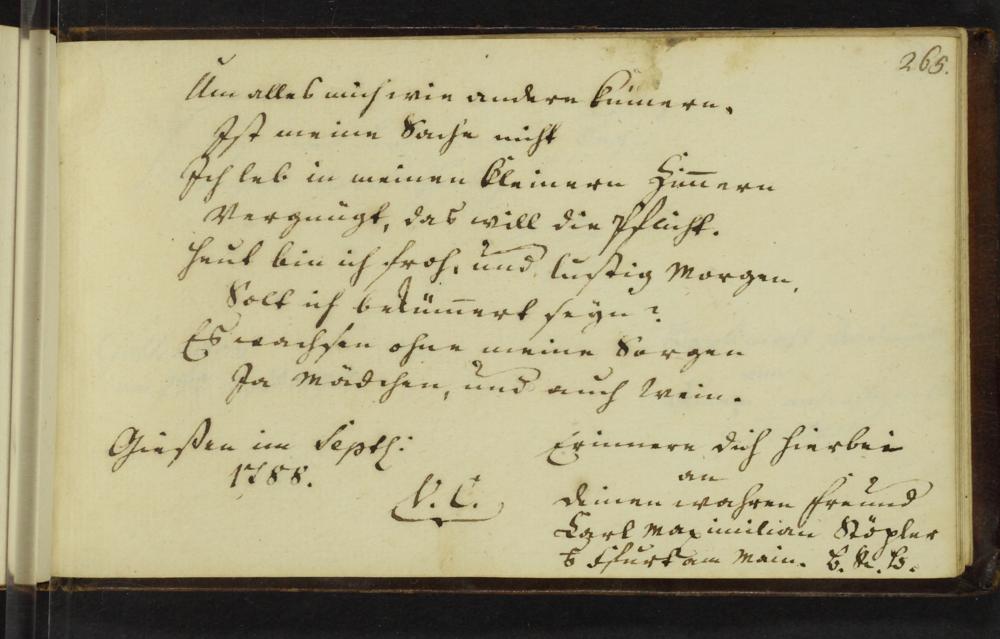 265.
Um alles mich wie andere kümern,
Ist meine Sache nicht
Ich leb in meinen kleinern Zim̄ern
Vergnügt, das will die Pflicht.
Heut bin ich froh, und lustig Morgen,
Solt ich beküm̄ert seyn?
Es wachsen ohne meine Sorgen
Ja Mädchen, und auch Wein.
Giesen im Septb:
1788.
V. C.
Erinnere dich hierbei
an
deinen wahren Freund
Carl Maximilian Stöpler
Ffurt am Main.